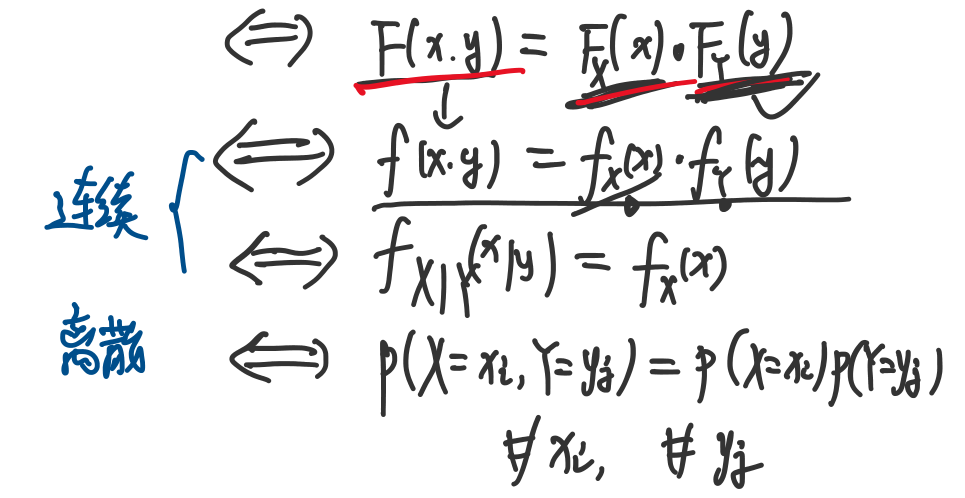 ⟺ F(x.y) = F_X(x)·F_Y(y)
连续 ⟺ f(x.y) = f_X(x)·f_Y(y)
⟺ f_{X|Y}(x|y) = f_X(x)
离散 ⟺ p(X=x_i, Y=y_j) = p(X=x_i)p(Y=y_j)
∀ x_i, ∀ y_j